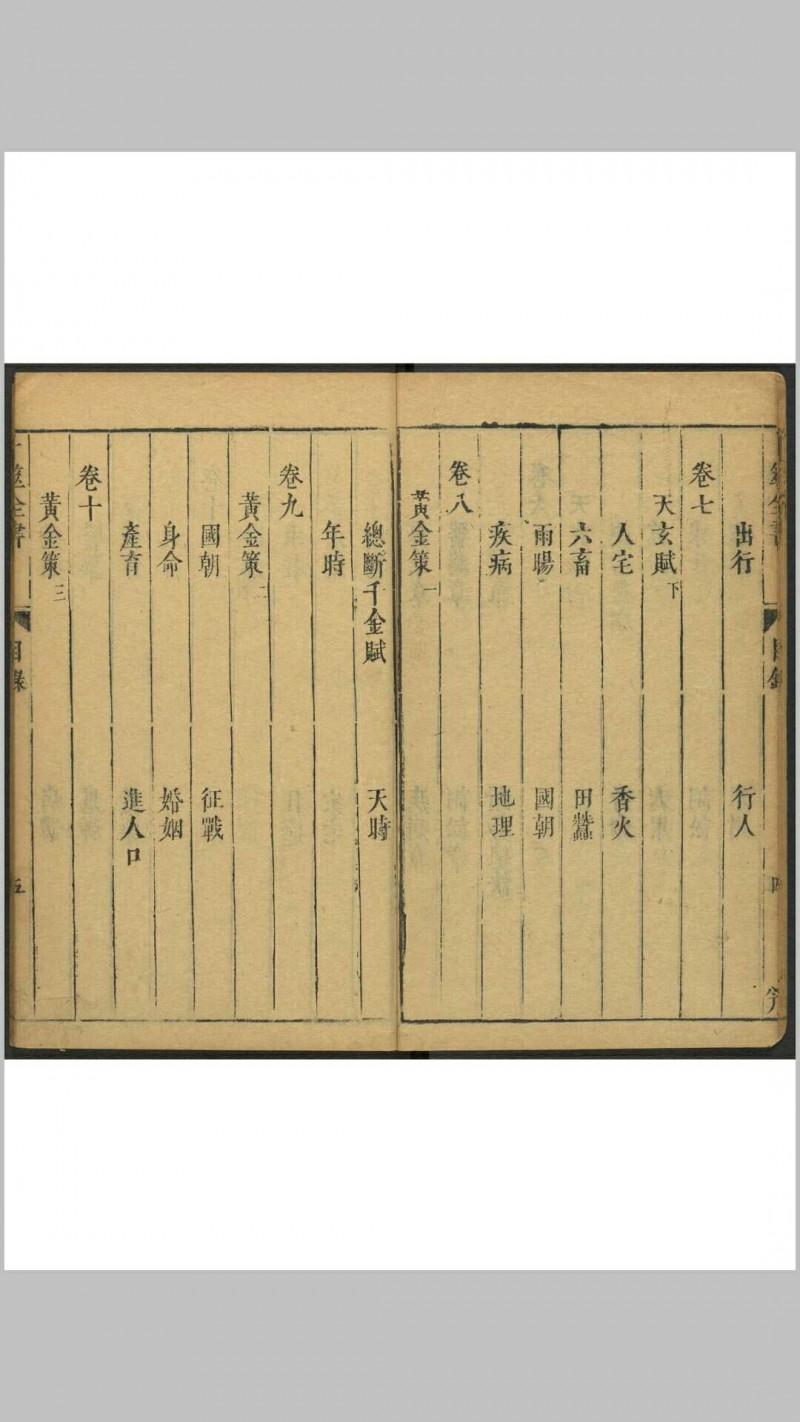 出行　行人
卷七
天玄賦下
人宅　香火
六畜　田蠶
雨暘　國朝
疾病　地理
卷八
黃金策一
總斷千金賦　天時
年時
卷九
黃金策二
國朝　征戰
身命　婚姻
產育　進人口
卷十
黃金策三
筮全書
目錄
五